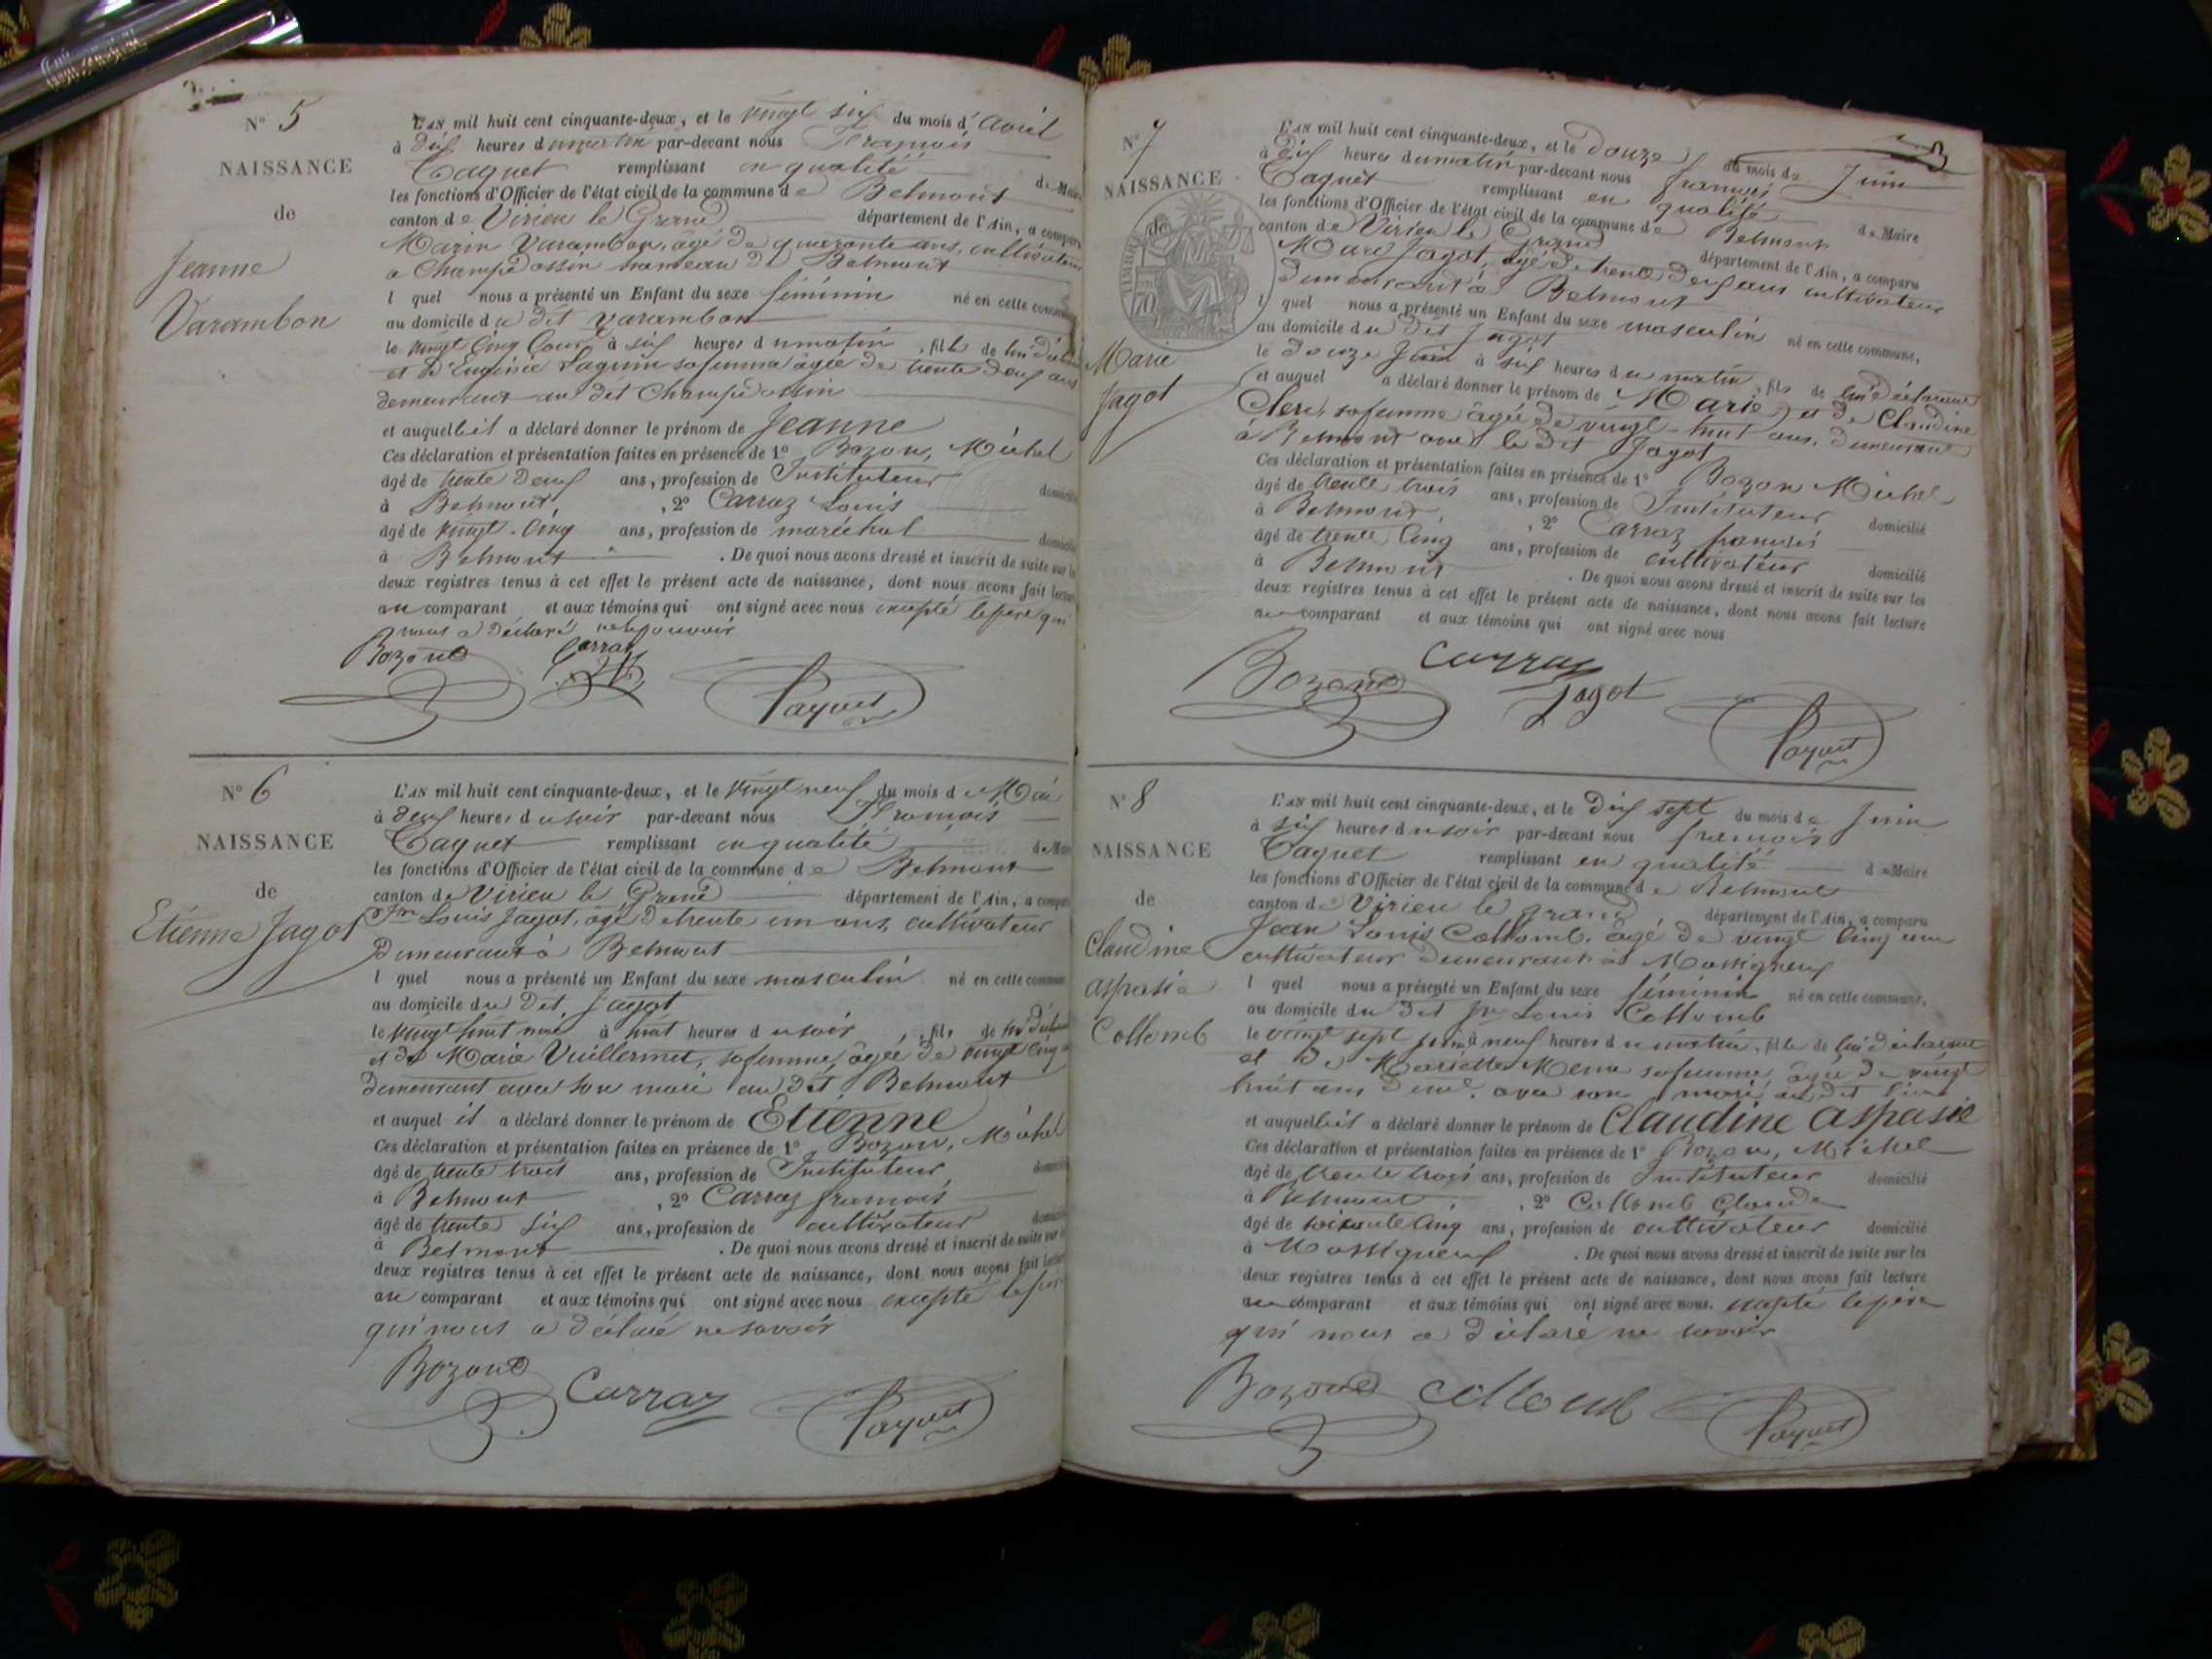 N° 5
NAISSANCE
de
Jeanne
Varambon
L'AN mil huit cent cinquante-deux, et le vingt six du mois d'avril
à dix heures du matin par-devant nous François
Paquet remplissant en qualité de Maire
les fonctions d'Officier de l'état civil de la commune de Belmont
canton de Virieu le Grand département de l'Ain, a comparu
Varambon, âgé de quarante ans, cultivateur
a Champdossin hameau de Belmont
lequel nous a présenté un Enfant du sexe féminin né en cette commune
au domicile du dit Varambon
le vingt cinq à six heures du matin, fille de lui déclarant
et de Eugénie sa femme âgée de trente deux ans
demeurant au dit Champdossin
et auquel il a déclaré donner le prénom de Jeanne
Ces déclaration et présentation faites en présence de 1° Bozon, Michel
âgé de trente deux ans, profession de Instituteur domicilié
à Belmont, 2° Carraz Louis
âgé de vingt-cinq ans, profession de maréchal domicilié
à Belmont. De quoi nous avons dressé et inscrit de suite sur les
deux registres tenus à cet effet le présent acte de naissance, dont nous avons fait lecture
au comparant et aux témoins qui ont signé avec nous excepté le père qui
nous a déclaré ne le pouvoir
Bozond Carraz
Paquet
N° 6
NAISSANCE
de
Etienne Jagot
L'AN mil huit cent cinquante-deux, et le vingt neuf du mois de Mai
à deux heures du soir par-devant nous François
Paquet remplissant en qualité de Maire
les fonctions d'Officier de l'état civil de la commune de Belmont
canton de Virieu le Grand département de l'Ain, a comparu
Louis Jagot, âgé de trente un ans, cultivateur
demeurant à Belmont
lequel nous a présenté un Enfant du sexe masculin né en cette commune
au domicile du dit Jagot
le vingt huit mai à huit heures du soir, fils de lui déclarant
et de Marie Vuillermet, sa femme, âgée de vingt cinq
demeurant avec son mari au dit Belmont
et auquel il a déclaré donner le prénom de Etienne
Ces déclaration et présentation faites en présence de 1° Bozon, Michel
âgé de trente trois ans, profession de Instituteur, domicilié
à Belmont, 2° Carraz françois
âgé de trente six ans, profession de cultivateur domicilié
à Belmont. De quoi nous avons dressé et inscrit de suite sur les
deux registres tenus à cet effet le présent acte de naissance, dont nous avons fait lecture
au comparant et aux témoins qui ont signé avec nous excepté le père
qui nous a déclaré ne savoir
Bozond Carraz
Paquet
3
N° 7
NAISSANCE
TIMBRE
70
Marie
Jagot
L'AN mil huit cent cinquante-deux, et le douze du mois de Juin
à dix heures du matin par-devant nous françois
Paquet remplissant en qualité de Maire
les fonctions d'Officier de l'état civil de la commune de Belmont
canton de Virieu le Grand département de l'Ain, a comparu
Marc Jagot, âgé de trente deux ans cultivateur
demeurant à Belmont
lequel nous a présenté un Enfant du sexe masculin né en cette commune,
au domicile du dit Jagot
le douze Juin à six heures du matin, fils de lui déclarant
et auquel a déclaré donner le prénom de Marie, et de Claudine
Clerc, sa femme âgée de vingt-huit ans, demeurant
à Belmont avec le dit Jagot
Ces déclaration et présentation faites en présence de 1° Bozon Michel
âgé de trente trois ans, profession de Instituteur domicilié
à Belmont, 2° Carraz françois
âgé de trente cinq ans, profession de cultivateur domicilié
à Belmont. De quoi nous avons dressé et inscrit de suite sur les
deux registres tenus à cet effet le présent acte de naissance, dont nous avons fait lecture
au comparant et aux témoins qui ont signé avec nous
Bozond Carraz
Jagot
Paquet
N° 8
NAISSANCE
de
Claudine
aspasie
Collomb
L'AN mil huit cent cinquante-deux, et le dix sept du mois de Juin
à six heures du soir par-devant nous françois
Paquet remplissant en qualité de Maire
les fonctions d'Officier de l'état civil de la commune de Belmont
canton de Virieu le grand département de l'Ain, a comparu
Jean Louis Collomb, âgé de vingt cinq ans
cultivateur demeurant à Massigneux
lequel nous a présenté un Enfant du sexe féminin né en cette commune,
au domicile du dit Jn Louis Collomb
le sept neuf heures du matin, fille de lui déclarant
et de sa femme, âgée de vingt
huit ans dem.t avec son mari au dit lieu
et auquel il a déclaré donner le prénom de Claudine aspasie
Ces déclaration et présentation faites en présence de 1° Bozon, Michel
âgé de trente trois ans, profession de Instituteur domicilié
à Belmont, 2° Collomb Claude
âgé de soixante cinq ans, profession de cultivateur domicilié
à Massigneux. De quoi nous avons dressé et inscrit de suite sur les
deux registres tenus à cet effet le présent acte de naissance, dont nous avons fait lecture
au comparant et aux témoins qui ont signé avec nous. excepté le père
qui nous a déclaré ne savoir
Bozond Collomb
Paquet